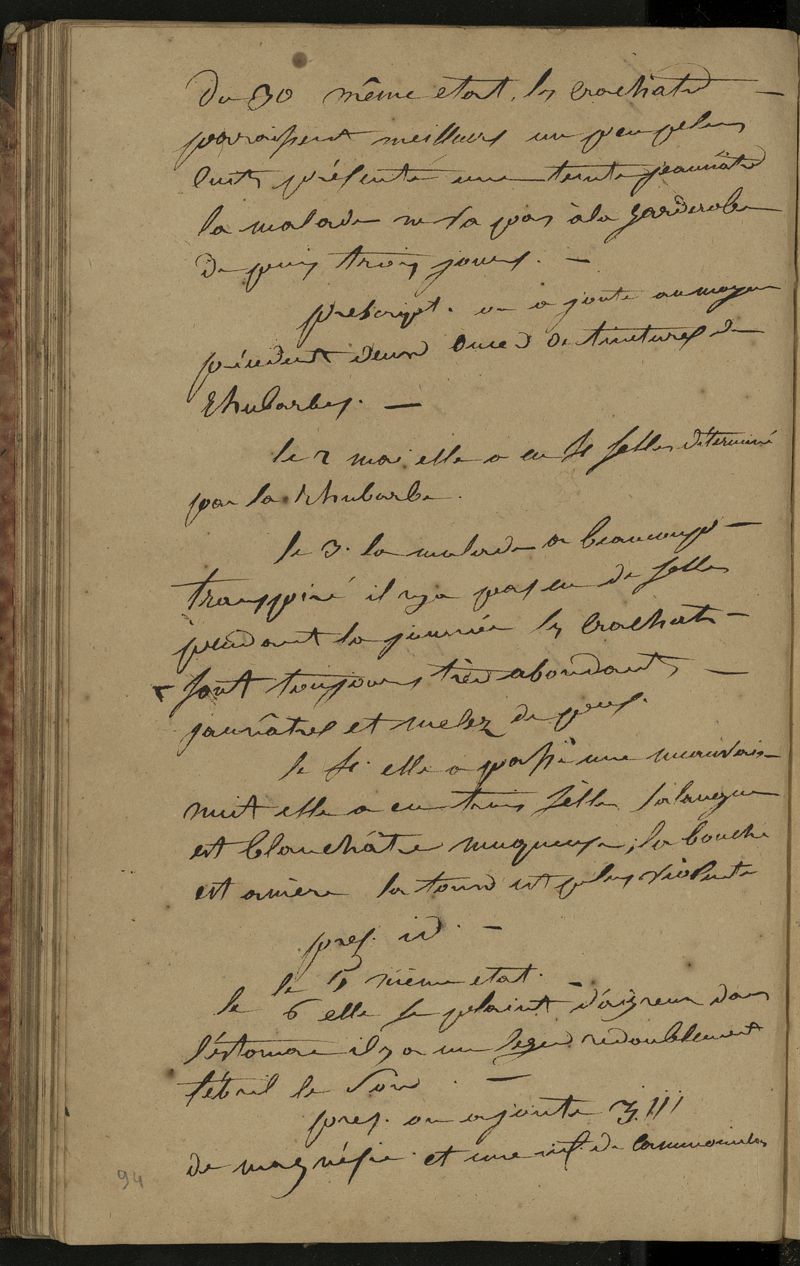 Du 30 même etat, les Crachats
paraissent meilleurs un peu plus
cuits présente une teinte jeaunâtre
la malade ne va pas à la garderobe
depuis trois jours. —
prescript. on ajoute au moyen
précédent d'eux once de tinture de
Rhubarbes. —
le 2 mai elle a eu 4 selles déterminé
par la Rhubarbe.
le 3. la malade a beaucoup —
transpiré il n'ya pas eu de selles
pendant la journée les Crachats —
sont toujours très abondants —
jaunâtres et melez de pus.
le 4. elle a passé une mauvaise
nuit elle a eu trois selles la langue
est blanchâtre muqueuse, la bouche
est amère la toux est plus violente
pres. id. —
le 5 même etat. —
le 6 elle se plaint d'aigreur dans
l'éstomac il y a un leger redoublement
fébril le soir. —
pres. on ajoute ʒ.III
de magnésie. et une inf. de Cammomille
94